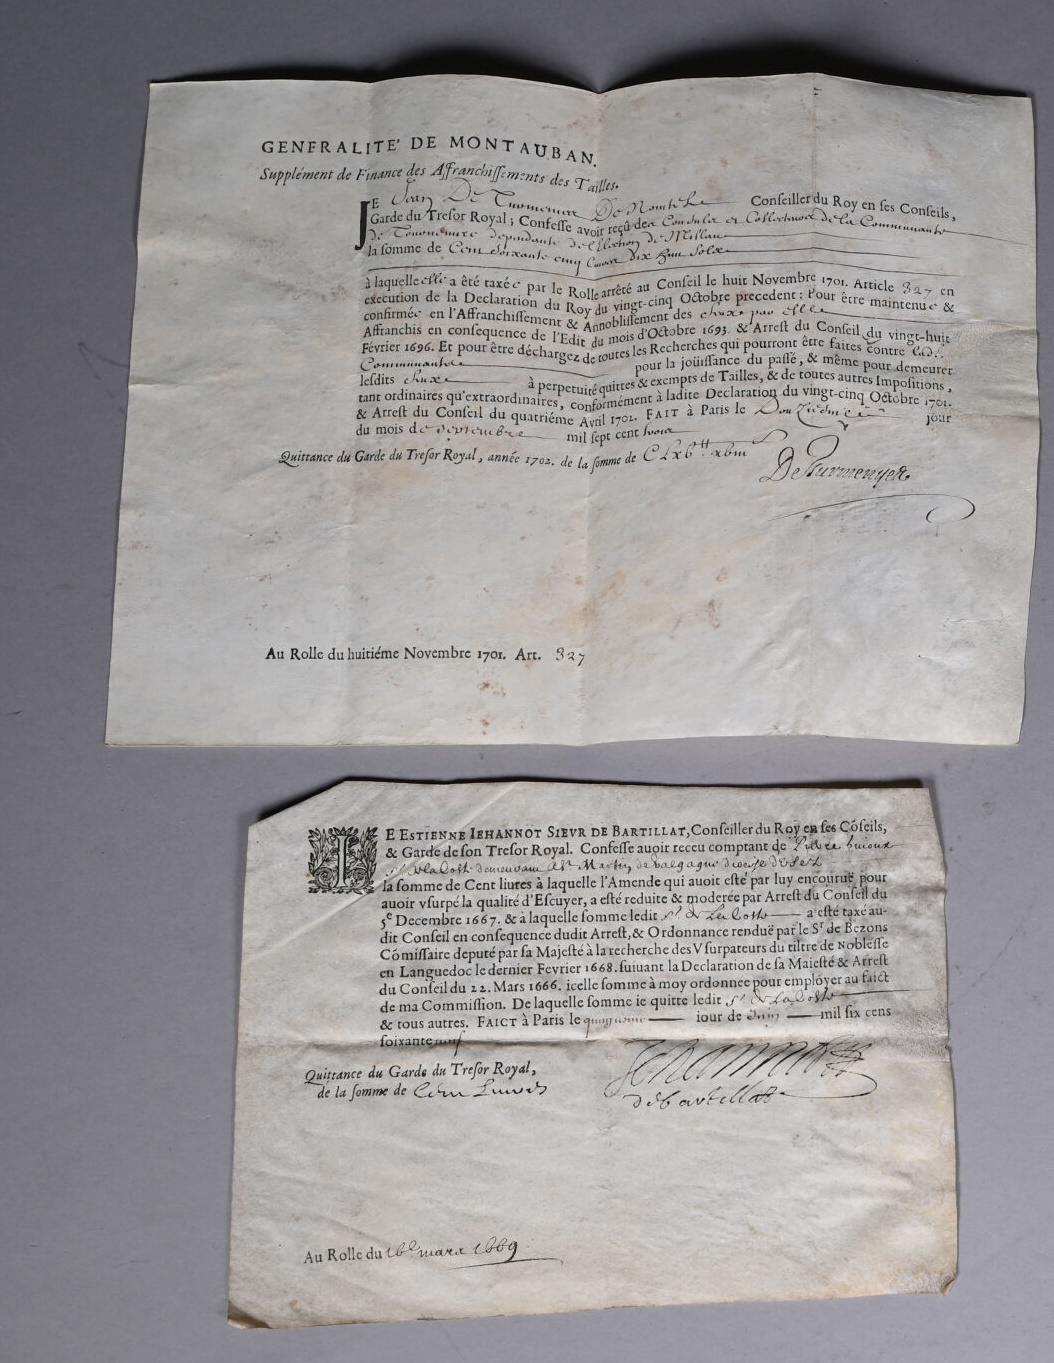 GENERALITE' DE MONTAUBAN.
Supplément de Finance des Affranchissements des Tailles.
JE Jean De Turmenies De Nointel Conseiller du Roy en ses Conseils,
Garde du Tresor Royal; Confesse avoir reçû des Consuls et Collecteurs de la Communauté
de dépendante de l'Election de Millau
la somme de Cent soixante cinq livres dix huit sols
à laquelle elle a été taxée par le Rolle arrêté au Conseil le huit Novembre 1701. Article 327 en
execution de la Declaration du Roy du vingt-cinq Octobre precedent; Pour être maintenuë &
confirmée en l'Affranchissement & Annoblissement des par elle
Affranchis en consequence de l'Edit du mois d'Octobre 1693. & Arrest du Conseil du vingt-huit
Février 1696. Et pour être déchargez de toutes les Recherches qui pourront être faites contre lad.
Communauté pour la joüissance du passé, & même pour demeurer
lesdits à perpetuité quittes & exempts de Tailles, & de toutes autres Impositions,
tant ordinaires qu'extraordinaires, conformément à ladite Declaration du vingt-cinq Octobre 1701.
& Arrest du Conseil du quatriéme Avril 1702. FAIT à Paris le Douziesme jour
du mois de Septembre mil sept cent trois
Quittance du Garde du Tresor Royal, année 1702. de la somme de CLxbtt xbiii
De Turmenyes
Au Rolle du huitiéme Novembre 1701. Art. 327
IE ESTIENNE IEHANNOT SIEVR DE BARTILLAT, Conseiller du Roy en ses Cõseils,
& Garde de son Tresor Royal. Confesse auoir receu comptant de Pierre
Sr. de la Coste demeurant a St. Martin de Valgagne diocese d'Usez
la somme de Cent liures à laquelle l'Amende qui auoit esté par luy encouruë pour
auoir vsurpé la qualité d'Escuyer, a esté reduite & moderée par Arrest du Conseil du
5e Decembre 1667. & à laquelle somme ledit Sr. de La Coste a esté taxé au-
dit Conseil en consequence dudit Arrest, & Ordonnance renduë par le Sr de Bezons
Cõmissaire deputé par sa Majesté à la recherche des Vsurpateurs du tiltre de Noblesse
en Languedoc le dernier Fevrier 1668. suiuant la Declaration de sa Maiesté & Arrest
du Conseil du 22. Mars 1666. icelle somme à moy ordonnee pour employer au faict
de ma Commission. De laquelle somme ie quitte ledit Sr. de La Coste
& tous autres. FAICT à Paris le quinziesme iour de Juin mil six cens
soixante neuf
Quittance du Garde du Tresor Royal,
de la somme de Cent Livres
Jehannot
de bartillat
Au Rolle du 16e mars 1669